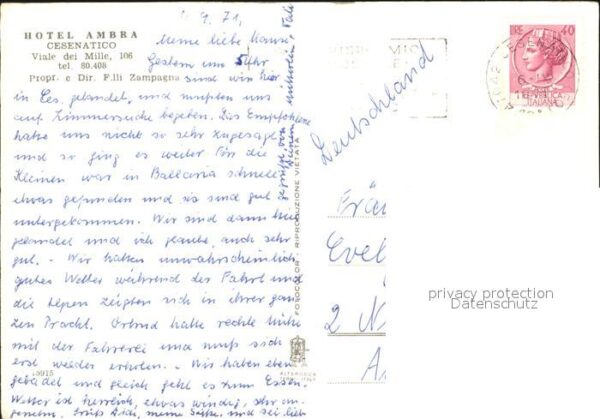 HOTEL AMBRA
CESENATICO
Viale dei Mille, 106
tel. 80.408
Propr. e Dir. F.lli Zampagna
4.9.71,
Meine liebe
Gestern um 5 Uhr
sind wir hier
in Ces. gelandet, und mußten uns
auf Zimmersuche begeben. Das Empfohlene
hatte uns nicht so sehr zugesagt
und so ging es weiter. Für die
Kleinen war in Bellaria schnell
etwas gefunden und sie sind gut
untergekommen. Wir sind dann hier
gelandet und ich glaube, auch sehr
gut. - Wir hatten unwahrscheinlich
gutes Wetter während der Fahrt und
die Alpen zeigten sich in ihrer gan-
zen Pracht. hatte rechte Mühe
mit der Fahrerei und muß sich
erst wieder erholen. - Wir haben eben
gebadet und gleich geht es zum Essen.
Wetter ist herrlich, etwas windig, sehr an-
genehm. Grüß Dich, meine Süße, und sei lieb
gegrüßt, von
Deinen
15915
FOTOCOLOR - RIPRODUZIONE VIETATA
Deutschland
Frä
Evel
2
privacy protection
Datenschutz
LIRE 40
REPUBBLICA
ITALIANA
CESENA